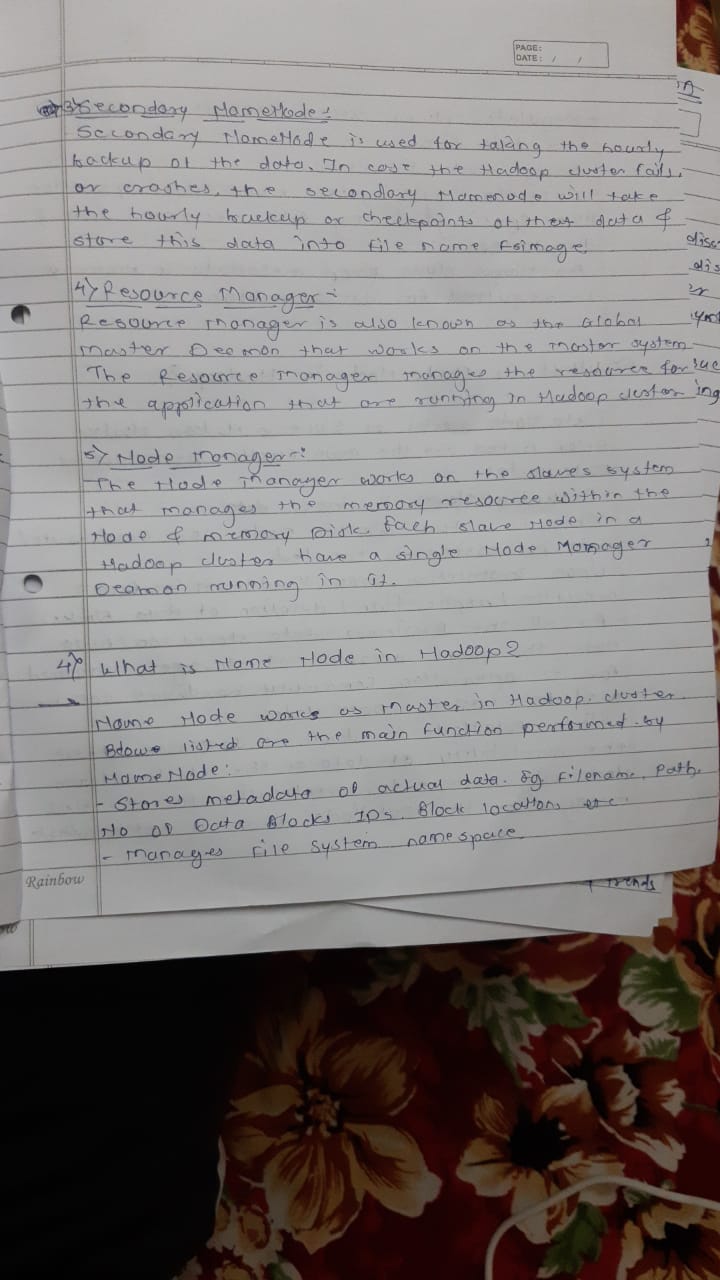 PAGE:
DATE: / /
3) Secondary NameNode :
Secondary NameNode is used for taking the hourly
backup of the data. In case the Hadoop cluster fails,
or crashes, the secondary Namenode will take
the hourly backup or checkpoints of that data &
store this data into file name fsimage.
4) Resource Manager :-
Resource Manager is also known as the Global
Master Deamon that works on the master system
The Resource Manager manages the resource for
the application that are running in Hadoop cluster
5) Node Manager :-
The Node Manager works on the slaves system
that manages the memory resource within the
Node & memory Disk. Each slave Node in a
Hadoop cluster have a single Node Manager
Deamon running in it.
4) What is Name Node in Hadoop?
→
Name Node works as Master in Hadoop cluster.
Below listed are the main function performed by
NameNode:
- Stores metadata of actual data. Eg Filename, Path,
No of Data Blocks IDs, Block location, etc.
- Manages File system namespace
Rainbow
Trends